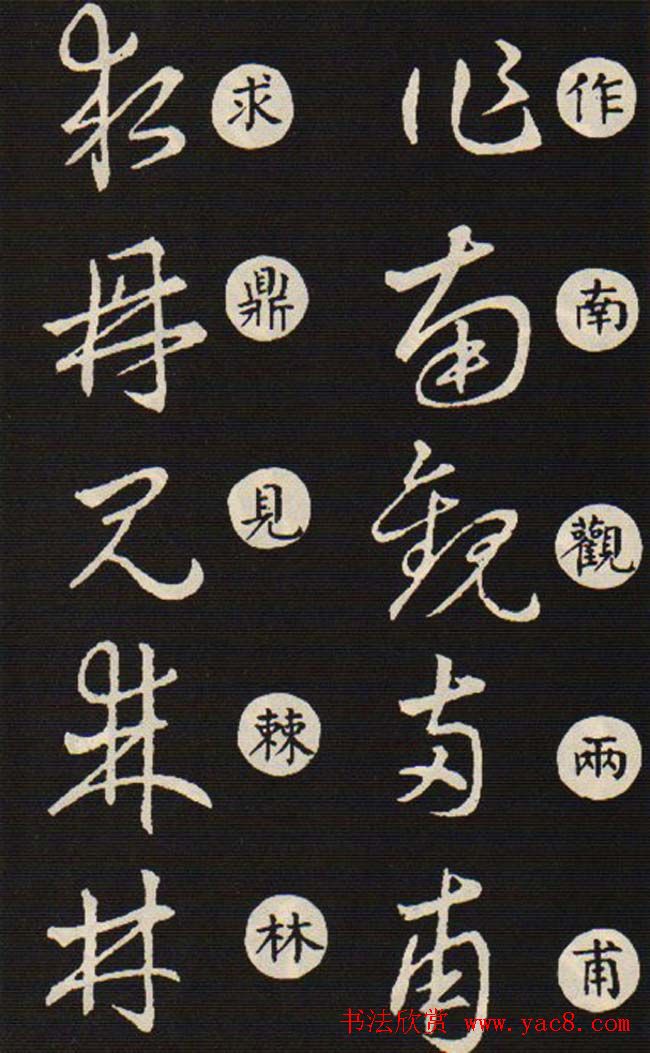 作南觀兩甫
求鼎見棘林
书法欣赏 www.yac8.com